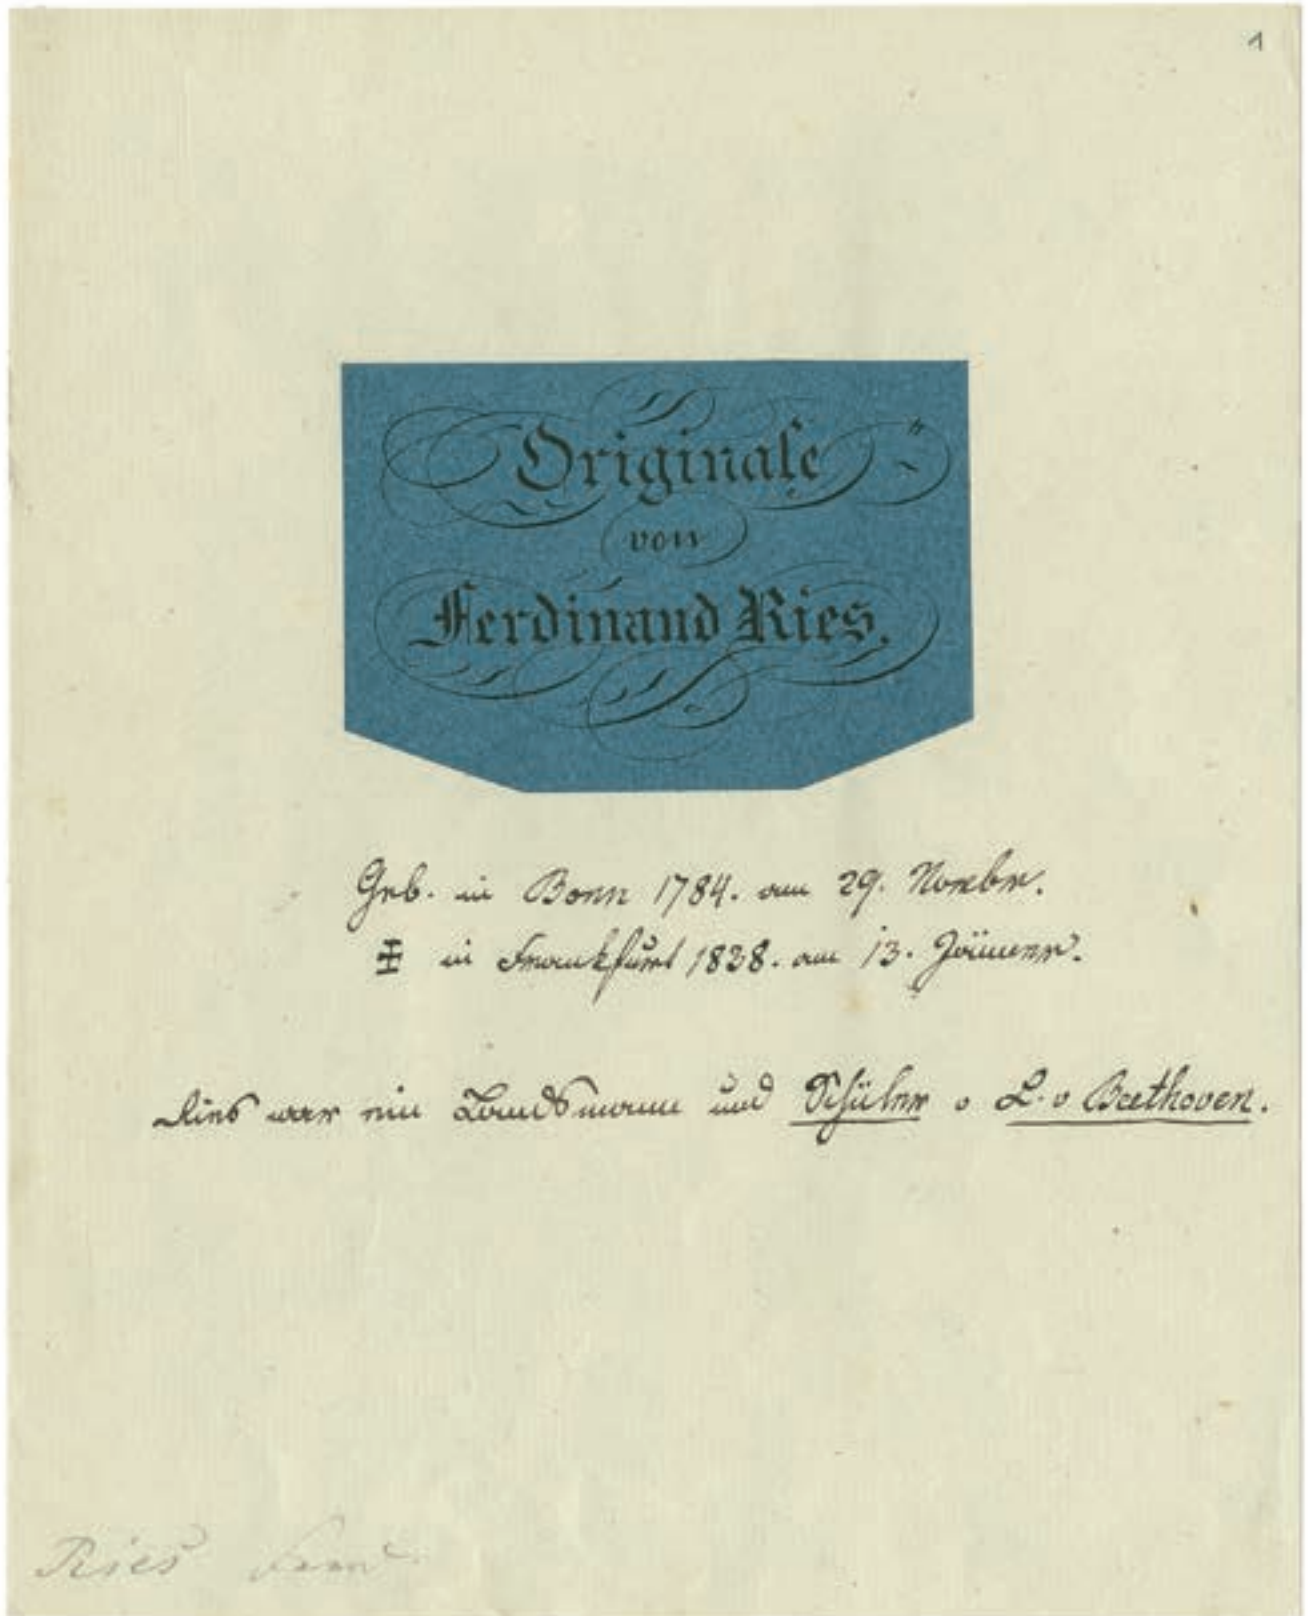 1
Originale
von
Ferdinand Ries.
Geb. in Bonn 1784. am 29. Novebr.
‡ in Frankfurt 1838. am 13. Jänner.
Ries war ein Landsmann und Schüler v L. v Beethoven.
Ries Ferd